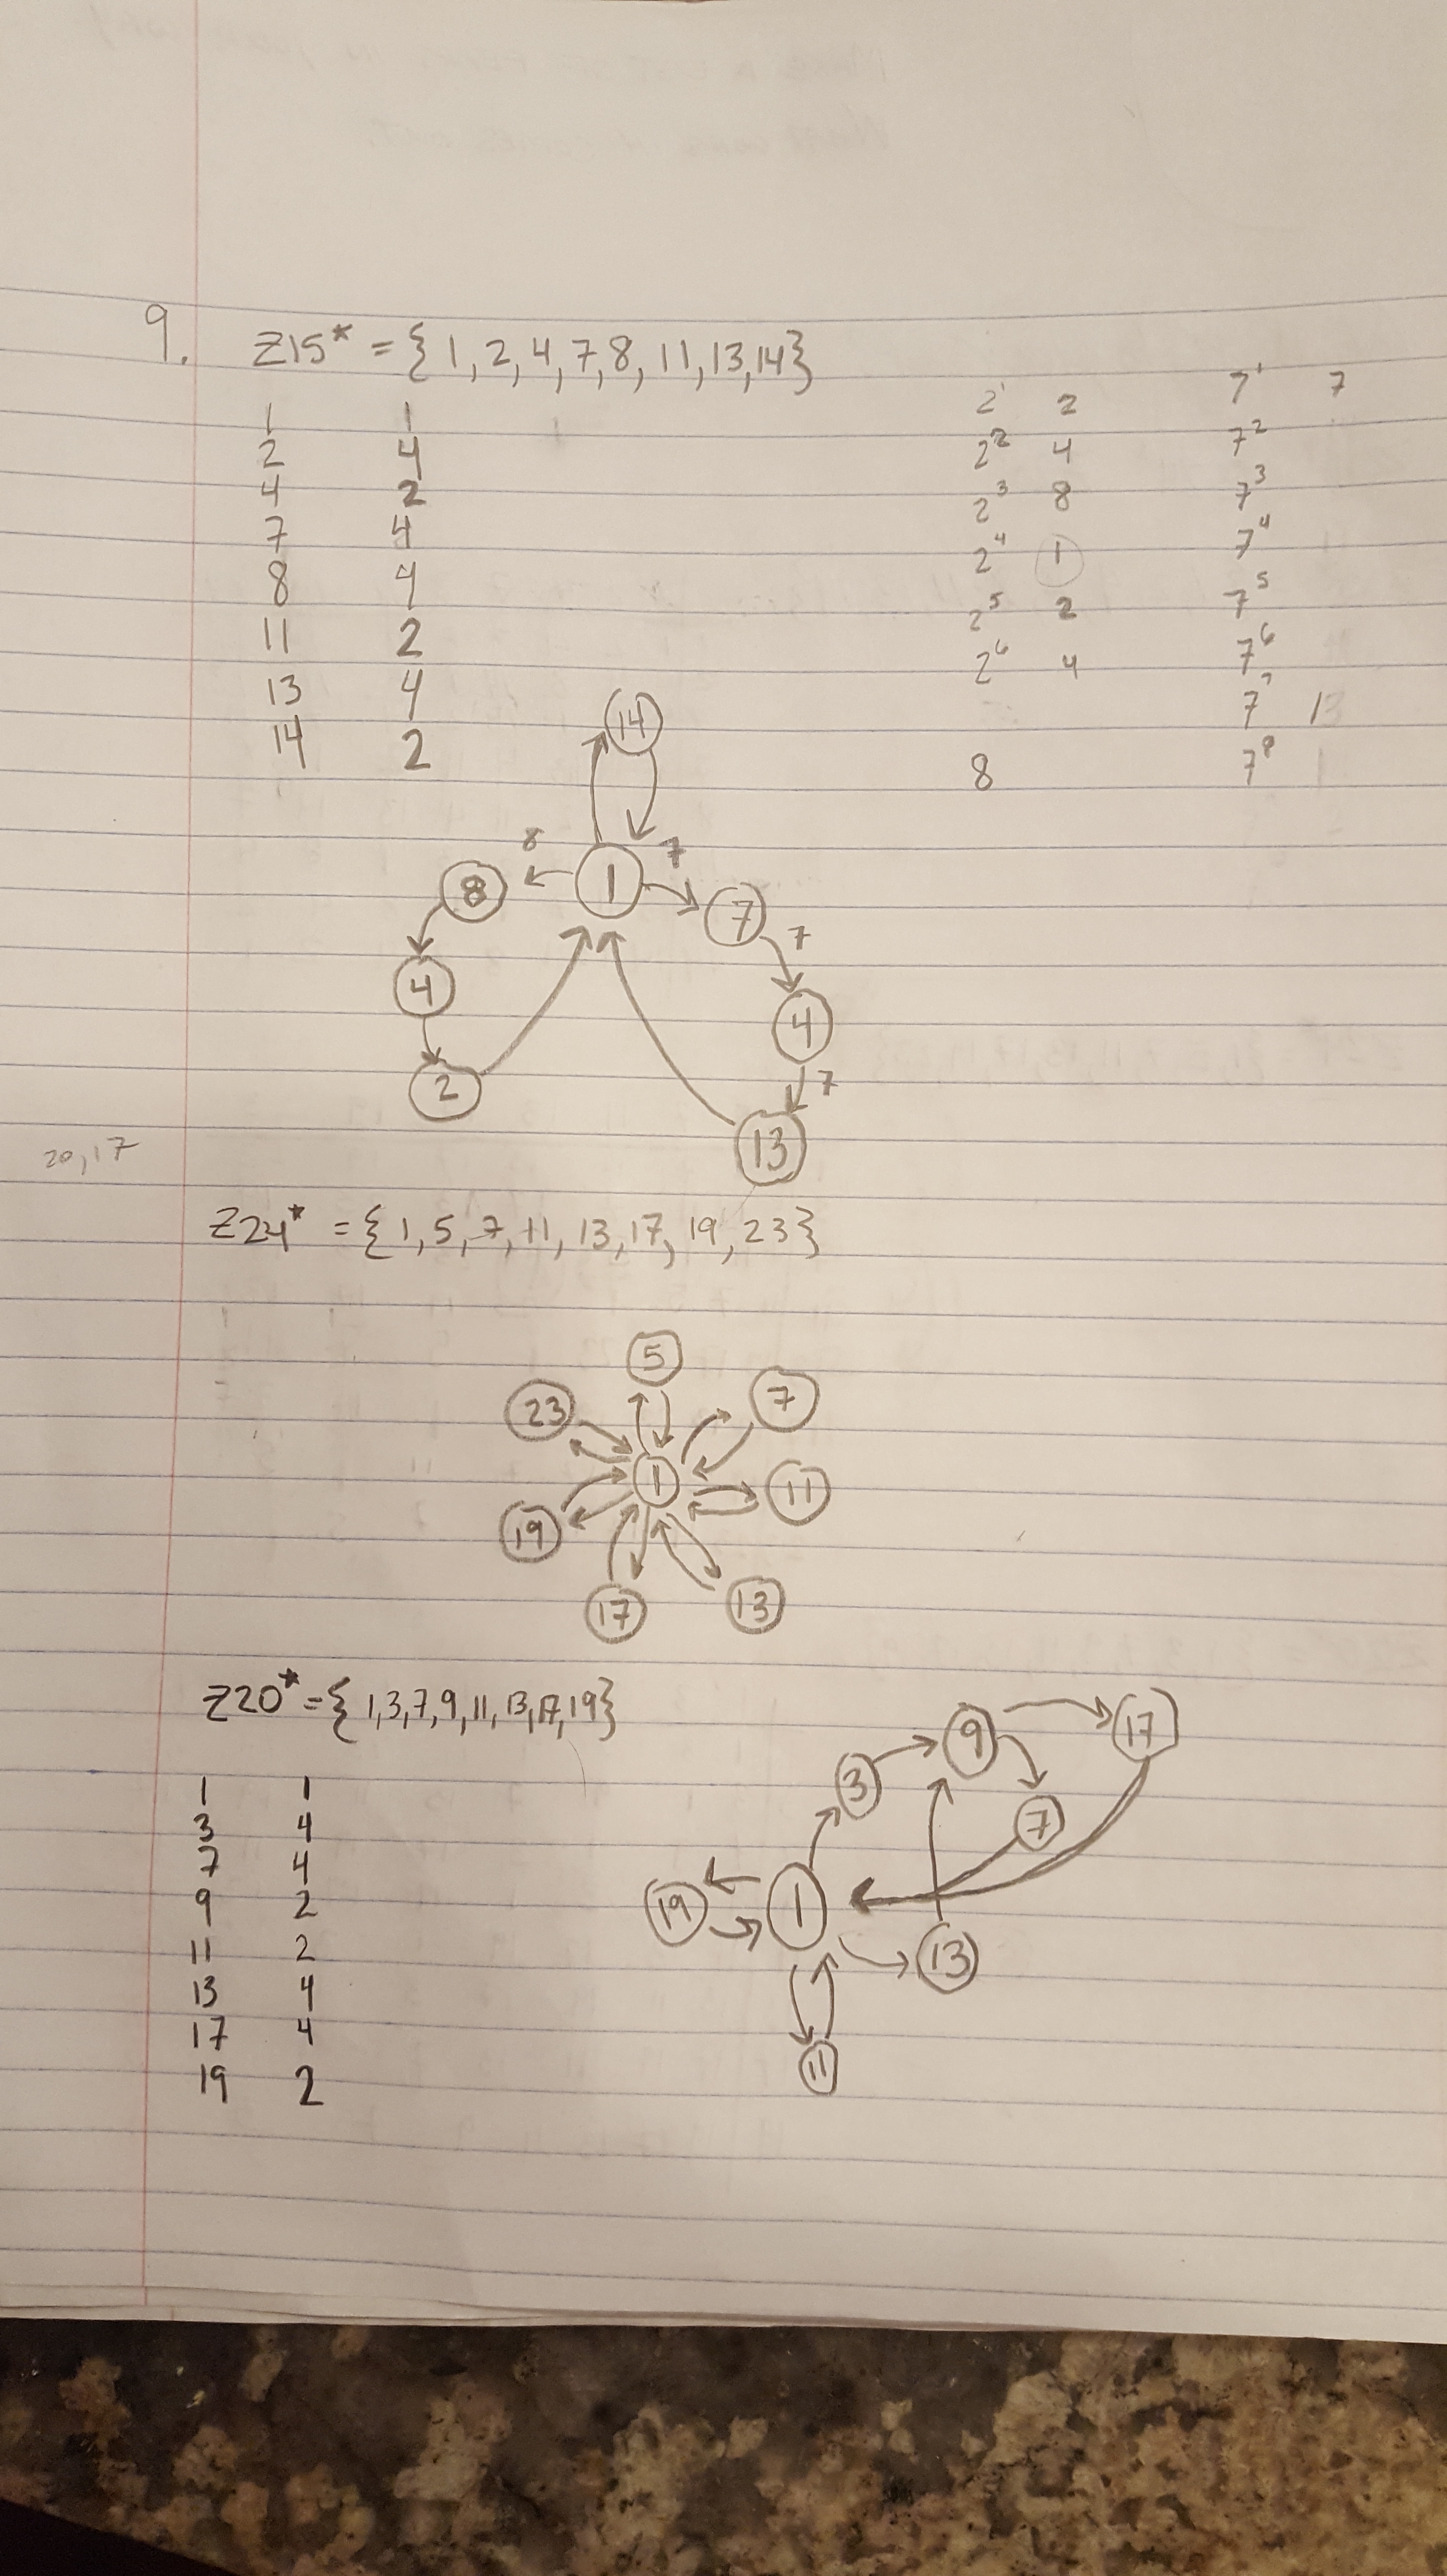 9. Z15* = {1, 2, 4, 7, 8, 11, 13, 14}
1 1
2 4
4 2
7 4
8 4
11 2
13 4
14 2
2¹ 2
2² 4
2³ 8
2⁴ 1
2⁵ 2
2⁶ 4
8
7¹ 7
7²
7³
7⁴
7⁵
7⁶
7⁷ 13
7⁸ 1
14
8 7
8 1 7
7
4 4
7
2
13
20, 17
Z24* = {1, 5, 7, 11, 13, 17, 19, 23}
5
23 7
1 11
19
17 13
Z20* = {1,3,7,9,11,13,17,19}
1 1
3 4
7 4
9 2
11 2
13 4
17 4
19 2
9 17
3
7
19 1
13
11